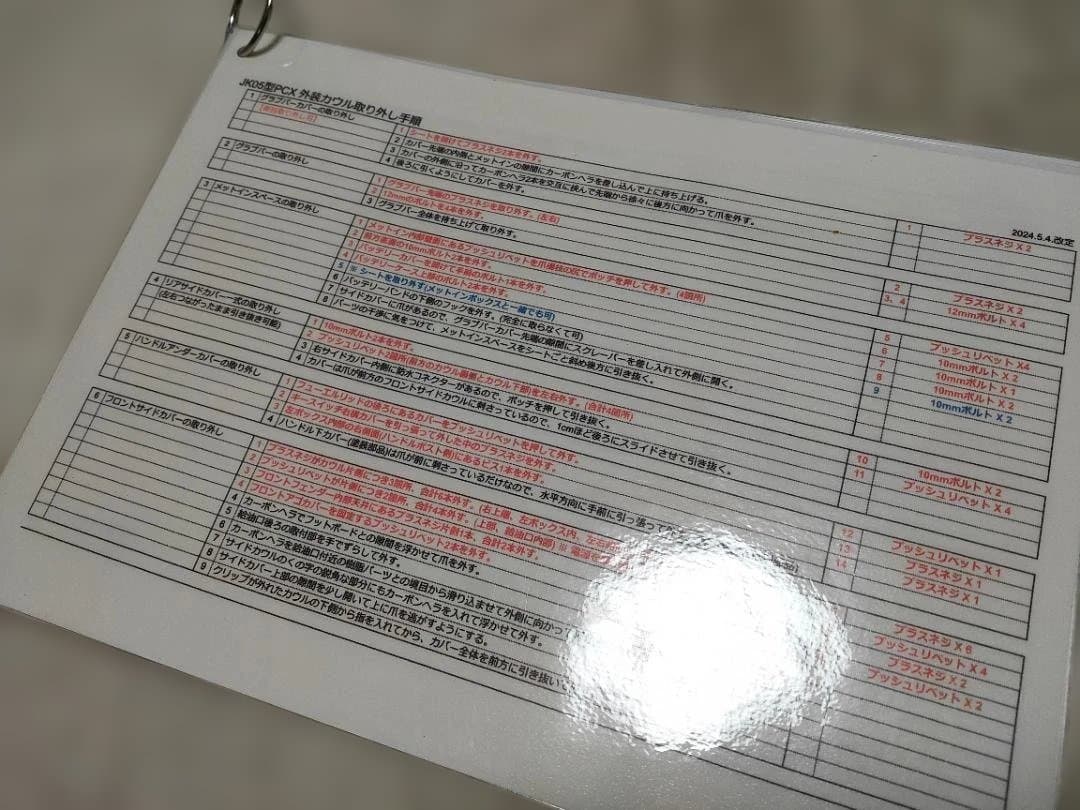 JK05型PCX 外装カウル取り外し手順
2024.5.4.改定
1 グラブバーカバーの取り外し
1 シートを開けてプラスネジ2本を外す。
1 プラスネジ X 2
2 カバー先端の内側とメットインの隙間にカーボンヘラを差し込んで上に持ち上げる。
3 カバーの外側に沿ってカーボンヘラ2本を交互に挟んで先端から徐々に後方に向かって爪を外す。
4 後ろに引くようにしてカバーを外す。
2 グラブバーの取り外し
1 グラブバー先端のプラスネジを取り外す。(左右)
2 プラスネジ X 2
2 12mmのボルトを4本を外す。
3、4 12mmボルト X 4
3 グラブバー全体を持ち上げて取り外す。
3 メットインスペースの取り外し
1 メットイン内部壁面にあるプッシュリベットを爪楊枝の尻でポッチを押して外す。(4箇所)
5 プッシュリベット X4
2 前方底面の10mmボルト2本を外す。
6 10mmボルト X 2
3 バッテリーカバーを開けて手前のボルト1本を外す。
7 10mmボルト X 1
4 バッテリーケース上部のボルト2本を外す。
8 10mmボルト X 2
5 ※ シートを取り外す(メットインボックスと一緒でも可)
9 10mmボルト X 2
6 バッテリーバンドの下側のフックを外す。(完全に取らなくて可)
7 サイドカバーに爪があるので、グラブバーカバー先端の隙間にスクレーパーを差し入れて外側に開く。
8 パーツの干渉に気をつけて、メットインスペースをシートごと斜め後方に引き抜く。
4 リアサイドカバー一式の取り外し
(左右つながったまま引き抜き可能)
1 10mmボルト2本を外す。
10 10mmボルト X 2
2 プッシュリベット2箇所(前方のカウル最後とカウル下部)を左右外す。(合計4箇所)
11 プッシュリベット X 4
3 右サイドカバー内側に防水コネクターがあるので、ポッチを押して引き抜く。
4 カバーは爪が前方のフロントサイドカウルに刺さっているので、1cmほど後ろにスライドさせて引き抜く。
5 ハンドルアンダーカバーの取り外し
1 フューエルリッドの後ろにあるカバーをプッシュリベットを押して外す。
12 プッシュリベット X 1
2 キースイッチ右横カバーを引っ張って外した中のプラスネジを外す。
13 プラスネジ X 1
3 左ボックス内部の右側面(ハンドルポスト側)にあるビス1本を外す。
14 プラスネジ X 1
4 ハンドル下カバー(塗装部品)は爪が前に刺さっているだけなので、水平方向に手前に引っ張って
6 フロントサイドカバーの取り外し
1 プラスネジがカウル片側につき3箇所、合計6本外す。(右上端、左ボックス内、左
プラスネジ X 6
2 プッシュリベットが片側につき2箇所、合計4本外す。(上部、給油口内部) ※ 電源
プッシュリベット X 4
3 フロントフェンダー内部天井にあるプラスネジ片側1本、合計2本外す。
プラスネジ X 2
4 フロントアゴカバーを固定するプッシュリベット2本を外す。
プッシュリベット X 2
4 カーボンヘラでフットボードとの隙間を浮かせて爪を外す。
5 給油口後ろの取付部を手でずらして外す。
6 カーボンヘラを給油口付近の樹脂パーツとの境目から滑り込ませて外側に向かっ
7 サイドカウルのくの字の鋭角な部分にもカーボンヘラを入れて浮かせて外す。
8 サイドカバー上部の隙間を少し開いて上に爪を逃がすようにする。
9 クリップが外れたカウルの下側から指を入れてから、カバー全体を前方に引き抜い